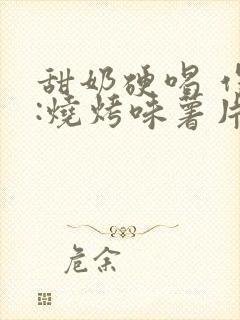 甜奶硬唱
:燒烤味薯片
危余